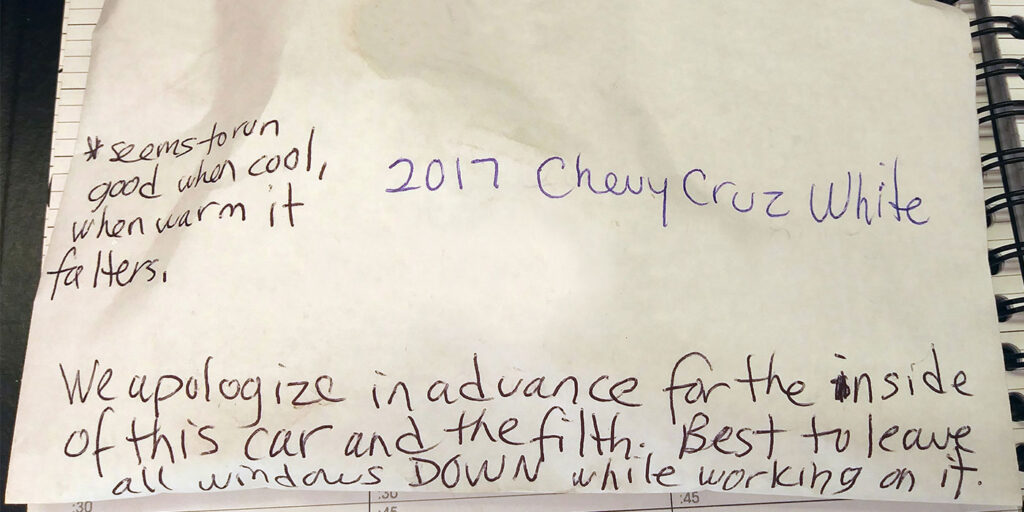 *seems to run
good when cool,
when warm it
falters.
2017 Chevy Cruz White
We apologize in advance for the inside
of this car and the filth. Best to leave
all windows DOWN while working on it.
:30
:30
:45
:45